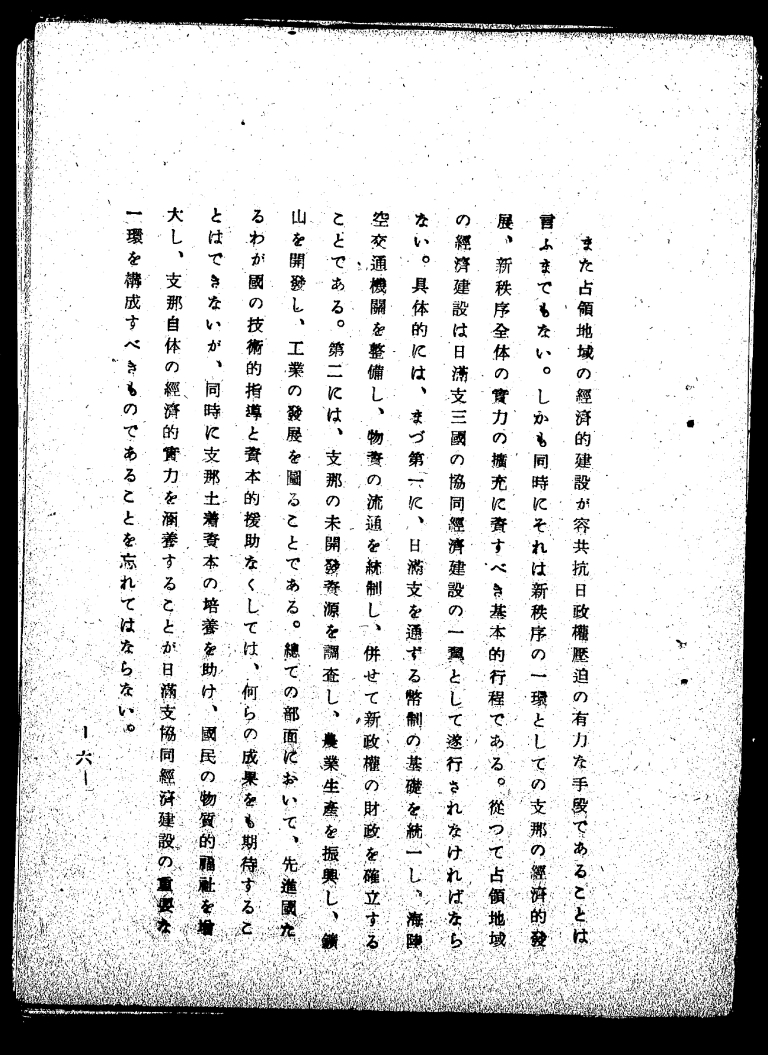 また占領地域の經濟的建設が容共抗日政權壓迫の有力な手段であることは
言ふまでもない。しかも同時にそれは新秩序の一環としての支那の經濟的發
展、新秩序全体の實力の擴充に資すべき基本的行程である。從つて占領地域
の經濟建設は日滿支三國の協同經濟建設の一翼として遂行されなければなら
ない。具体的には、まづ第一に、日滿支を通ずる幣制の基礎を統一し、海陸
空交通機關を整備し、物資の流通を統制し、併せて新政權の財政を確立する
ことである。第二には、支那の未開發資源を調査し、農業生產を振興し、鑛
山を開發し、工業の發展を圖ることである。總ての部面において、先進國た
るわが國の技術的指導と資本的援助なくしては、何らの成果をも期待するこ
とはできないが、同時に支那土着資本の培養を助け、國民の物質的福祉を增
大し、支那自体の經濟的實力を涵養することが日滿支協同經濟建設の重要な
一環を構成すべきものであることを忘れてはならない。
—六—